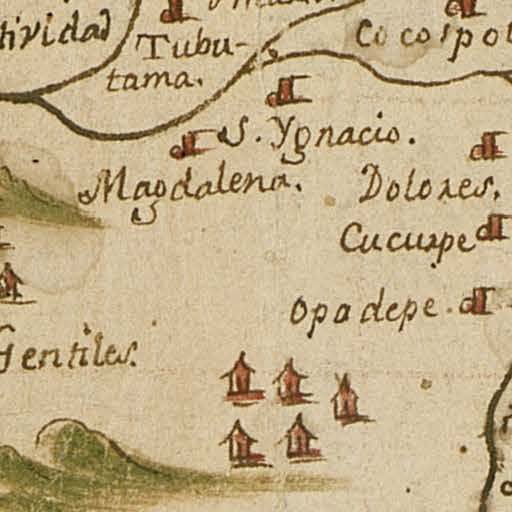 tividad
Tubu-
tama.
Cocospol
S. Ygnacio.
Magdalena.
Dolores.
Cucurpe
Opadepe.
Gentiles.